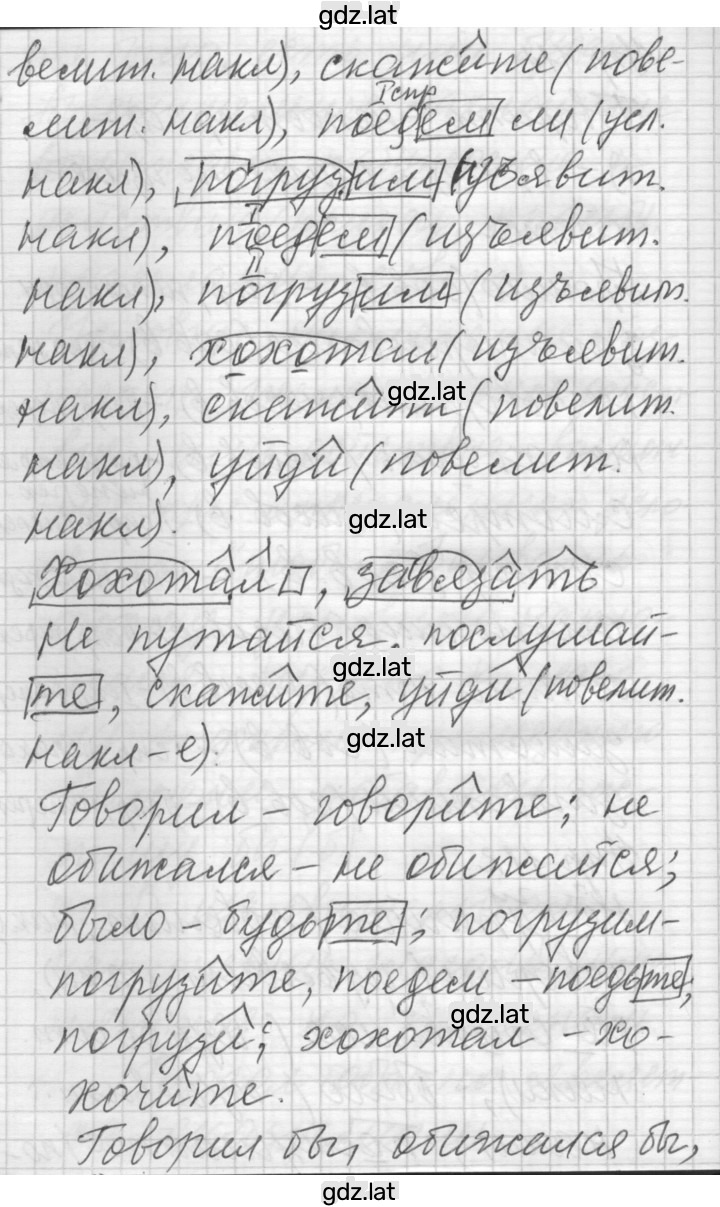 gdz.lat
велит. накл), скажите (пове-
Iспр
лит. накл), поедем ли (усл.
накл), погрузим (изъявит.
I
накл), поедем (изъявит.
II
накл), погрузим (изъявит.
накл), хохотал (изъявит.
gdz.lat
накл), скажит (повелит.
накл), уйди (повелит.
накл).
gdz.lat
Хохотал, завязать
Не путайся. послушай-
gdz.lat
те, скажите, уйди (повелит.
накл-е).
gdz.lat
Говорил – говорите; не
обижался – не обижайтся;
было – будьте; погрузим-
погрузите, поедем – поедьте,
gdz.lat
погрузи; хохотал – хо-
хочите.
Говорил бы, обижался бы,
gdz.lat